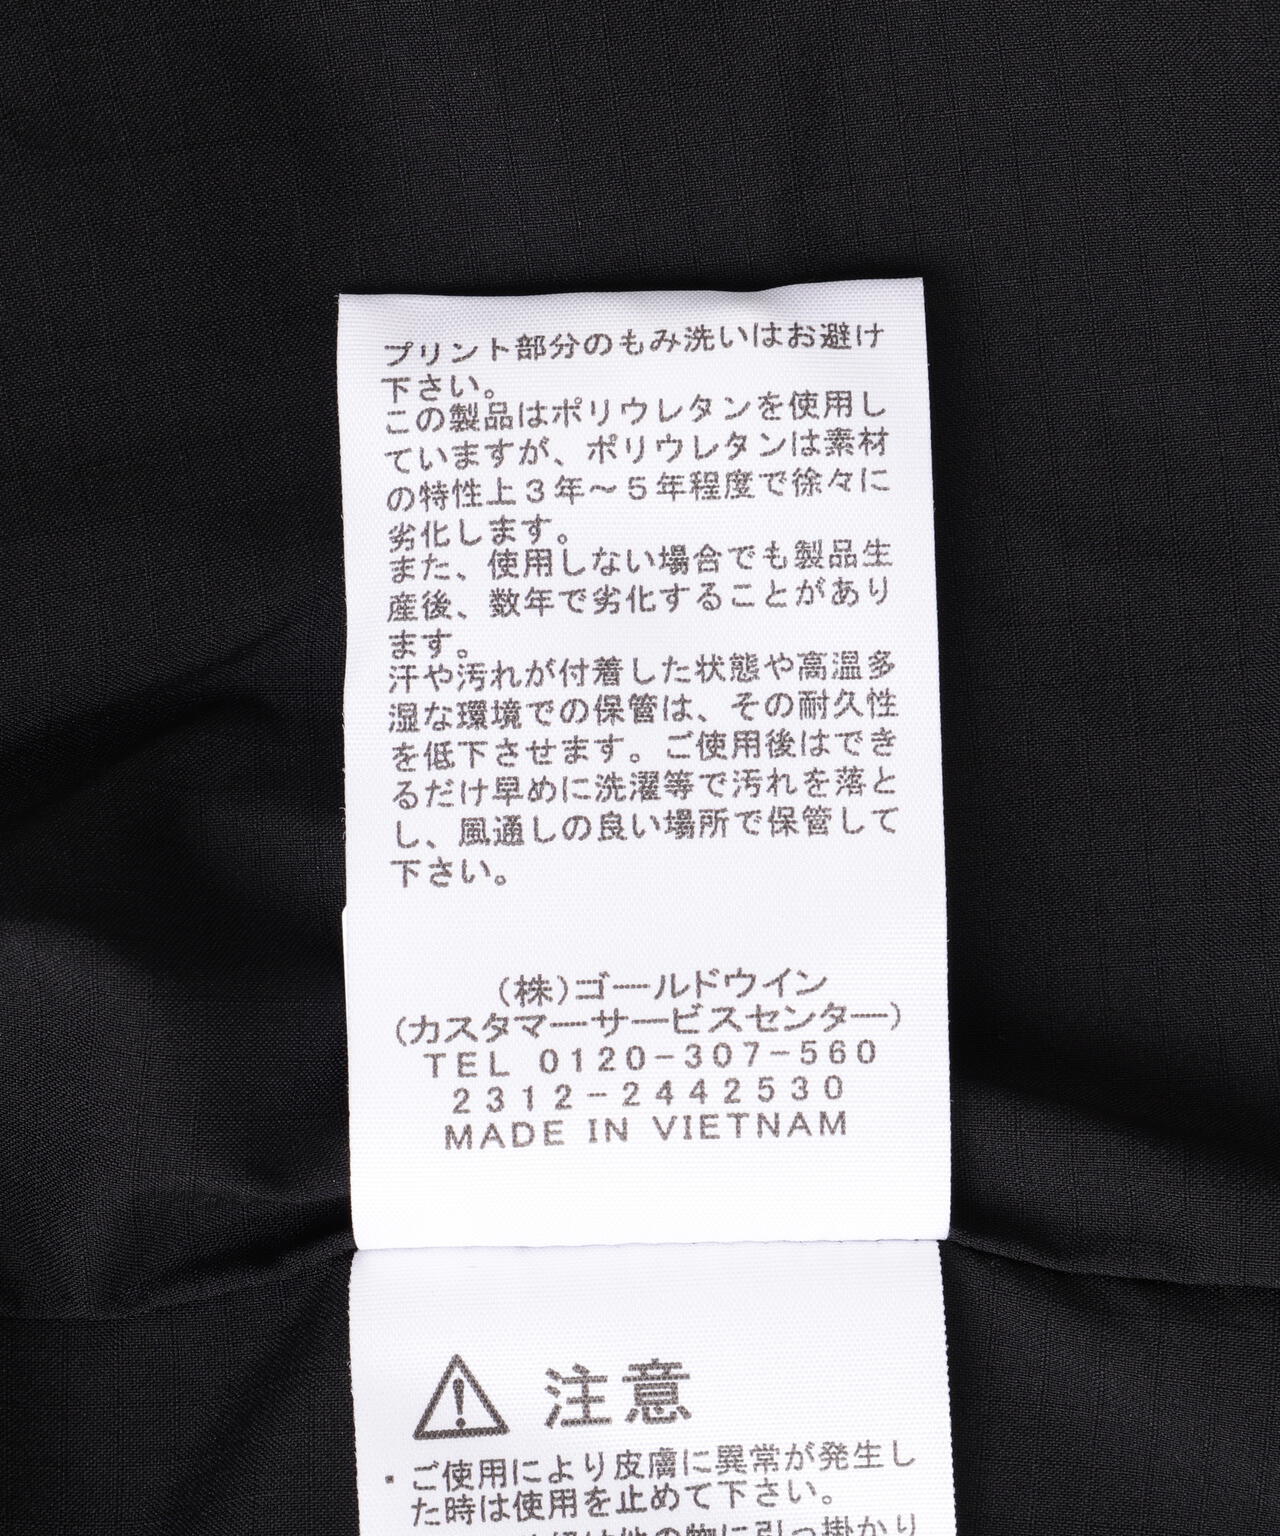 プリント部分のもみ洗いはお避け
下さい。
この製品はポリウレタンを使用し
ていますが、ポリウレタンは素材
の特性上3年～5年程度で徐々に
劣化します。
また、使用しない場合でも製品生
産後、数年で劣化することがあり
ます。
汗や汚れが付着した状態や高温多
湿な環境での保管は、その耐久性
を低下させます。ご使用後はでき
るだけ早めに洗濯等で汚れを落と
し、風通しの良い場所で保管して
下さい。
(株)ゴールドウイン
(カスタマーサービスセンター)
TEL 0120-307-560
2312-2442530
MADE IN VIETNAM
注意
・ご使用により皮膚に異常が発生し
た時は使用を止めて下さい。
は他の物に引っ掛かり